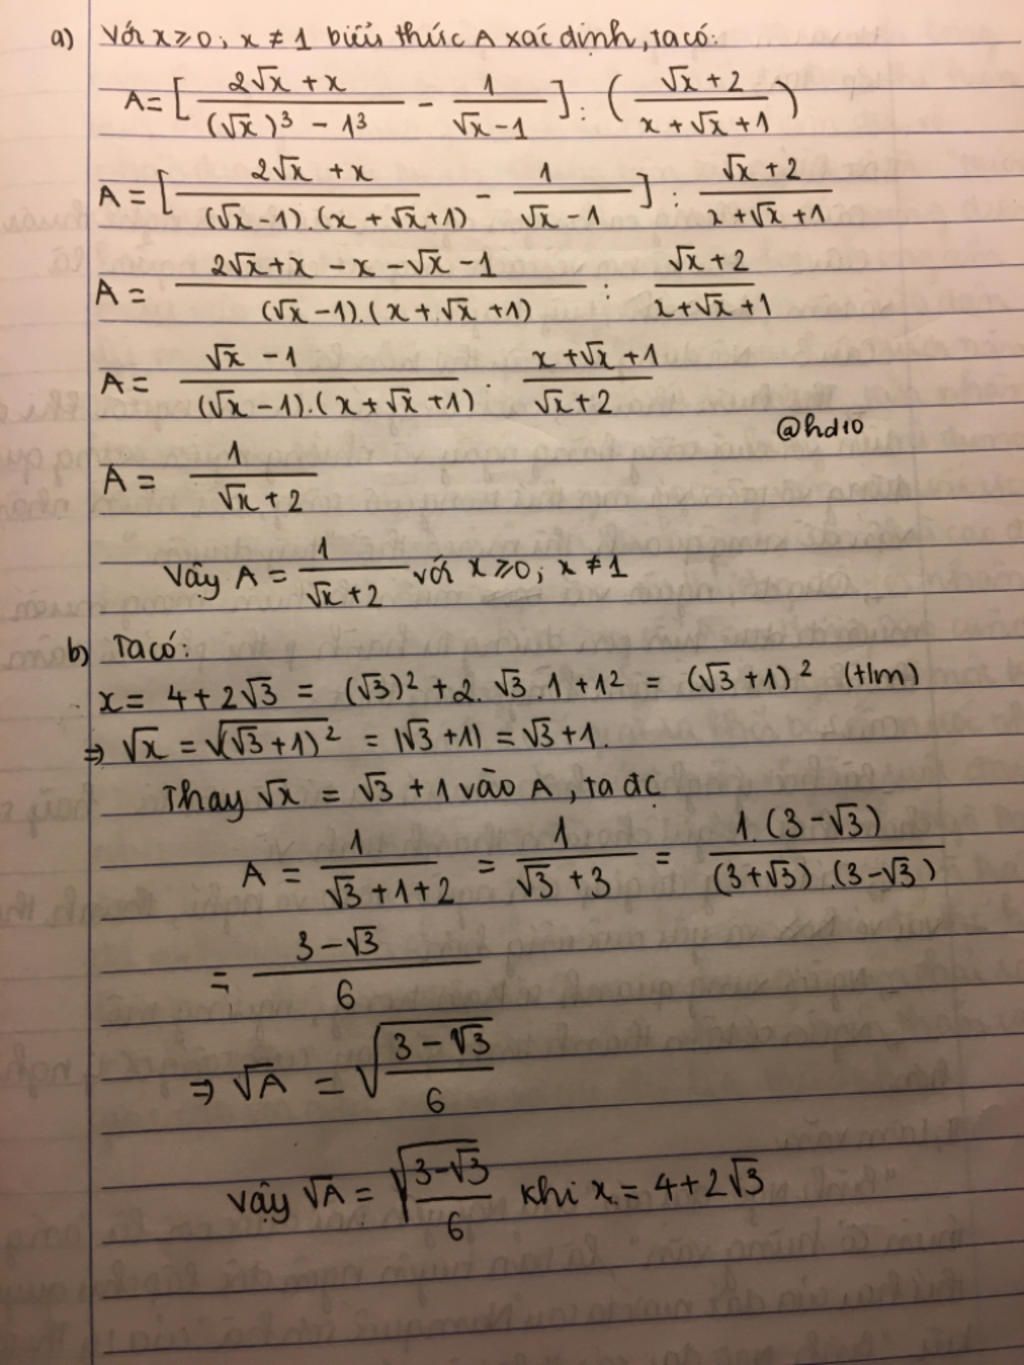 a) Với x ≥ 0; x ≠ 1 biểu thức A xác định, ta có:
A = [ (2√x + x)/((√x)³ - 1³) - 1/(√x - 1) ] : ( (√x + 2)/(x + √x + 1) )
A = [ (2√x + x)/((√x - 1).(x + √x + 1)) - 1/(√x - 1) ] : (√x + 2)/(x + √x + 1)
A = (2√x + x - x - √x - 1)/((√x - 1).(x + √x + 1)) : (√x + 2)/(x + √x + 1)
A = (√x - 1)/((√x - 1).(x + √x + 1)) . (x + √x + 1)/(√x + 2)
@hd10
A = 1/(√x + 2)
Vậy A = 1/(√x + 2) với x ≥ 0; x ≠ 1
b) Ta có:
x = 4 + 2√3 = (√3)² + 2.√3.1 + 1² = (√3 + 1)² (t/m)
⇒ √x = √((√3 + 1)²) = |√3 + 1| = √3 + 1.
Thay √x = √3 + 1 vào A, ta đc
A = 1/(√3 + 1 + 2) = 1/(√3 + 3) = (1.(3 - √3))/((3 + √3).(3 - √3))
= (3 - √3)/6
⇒ √A = √((3 - √3)/6)
Vậy √A = √((3 - √3)/6) khi x = 4 + 2√3